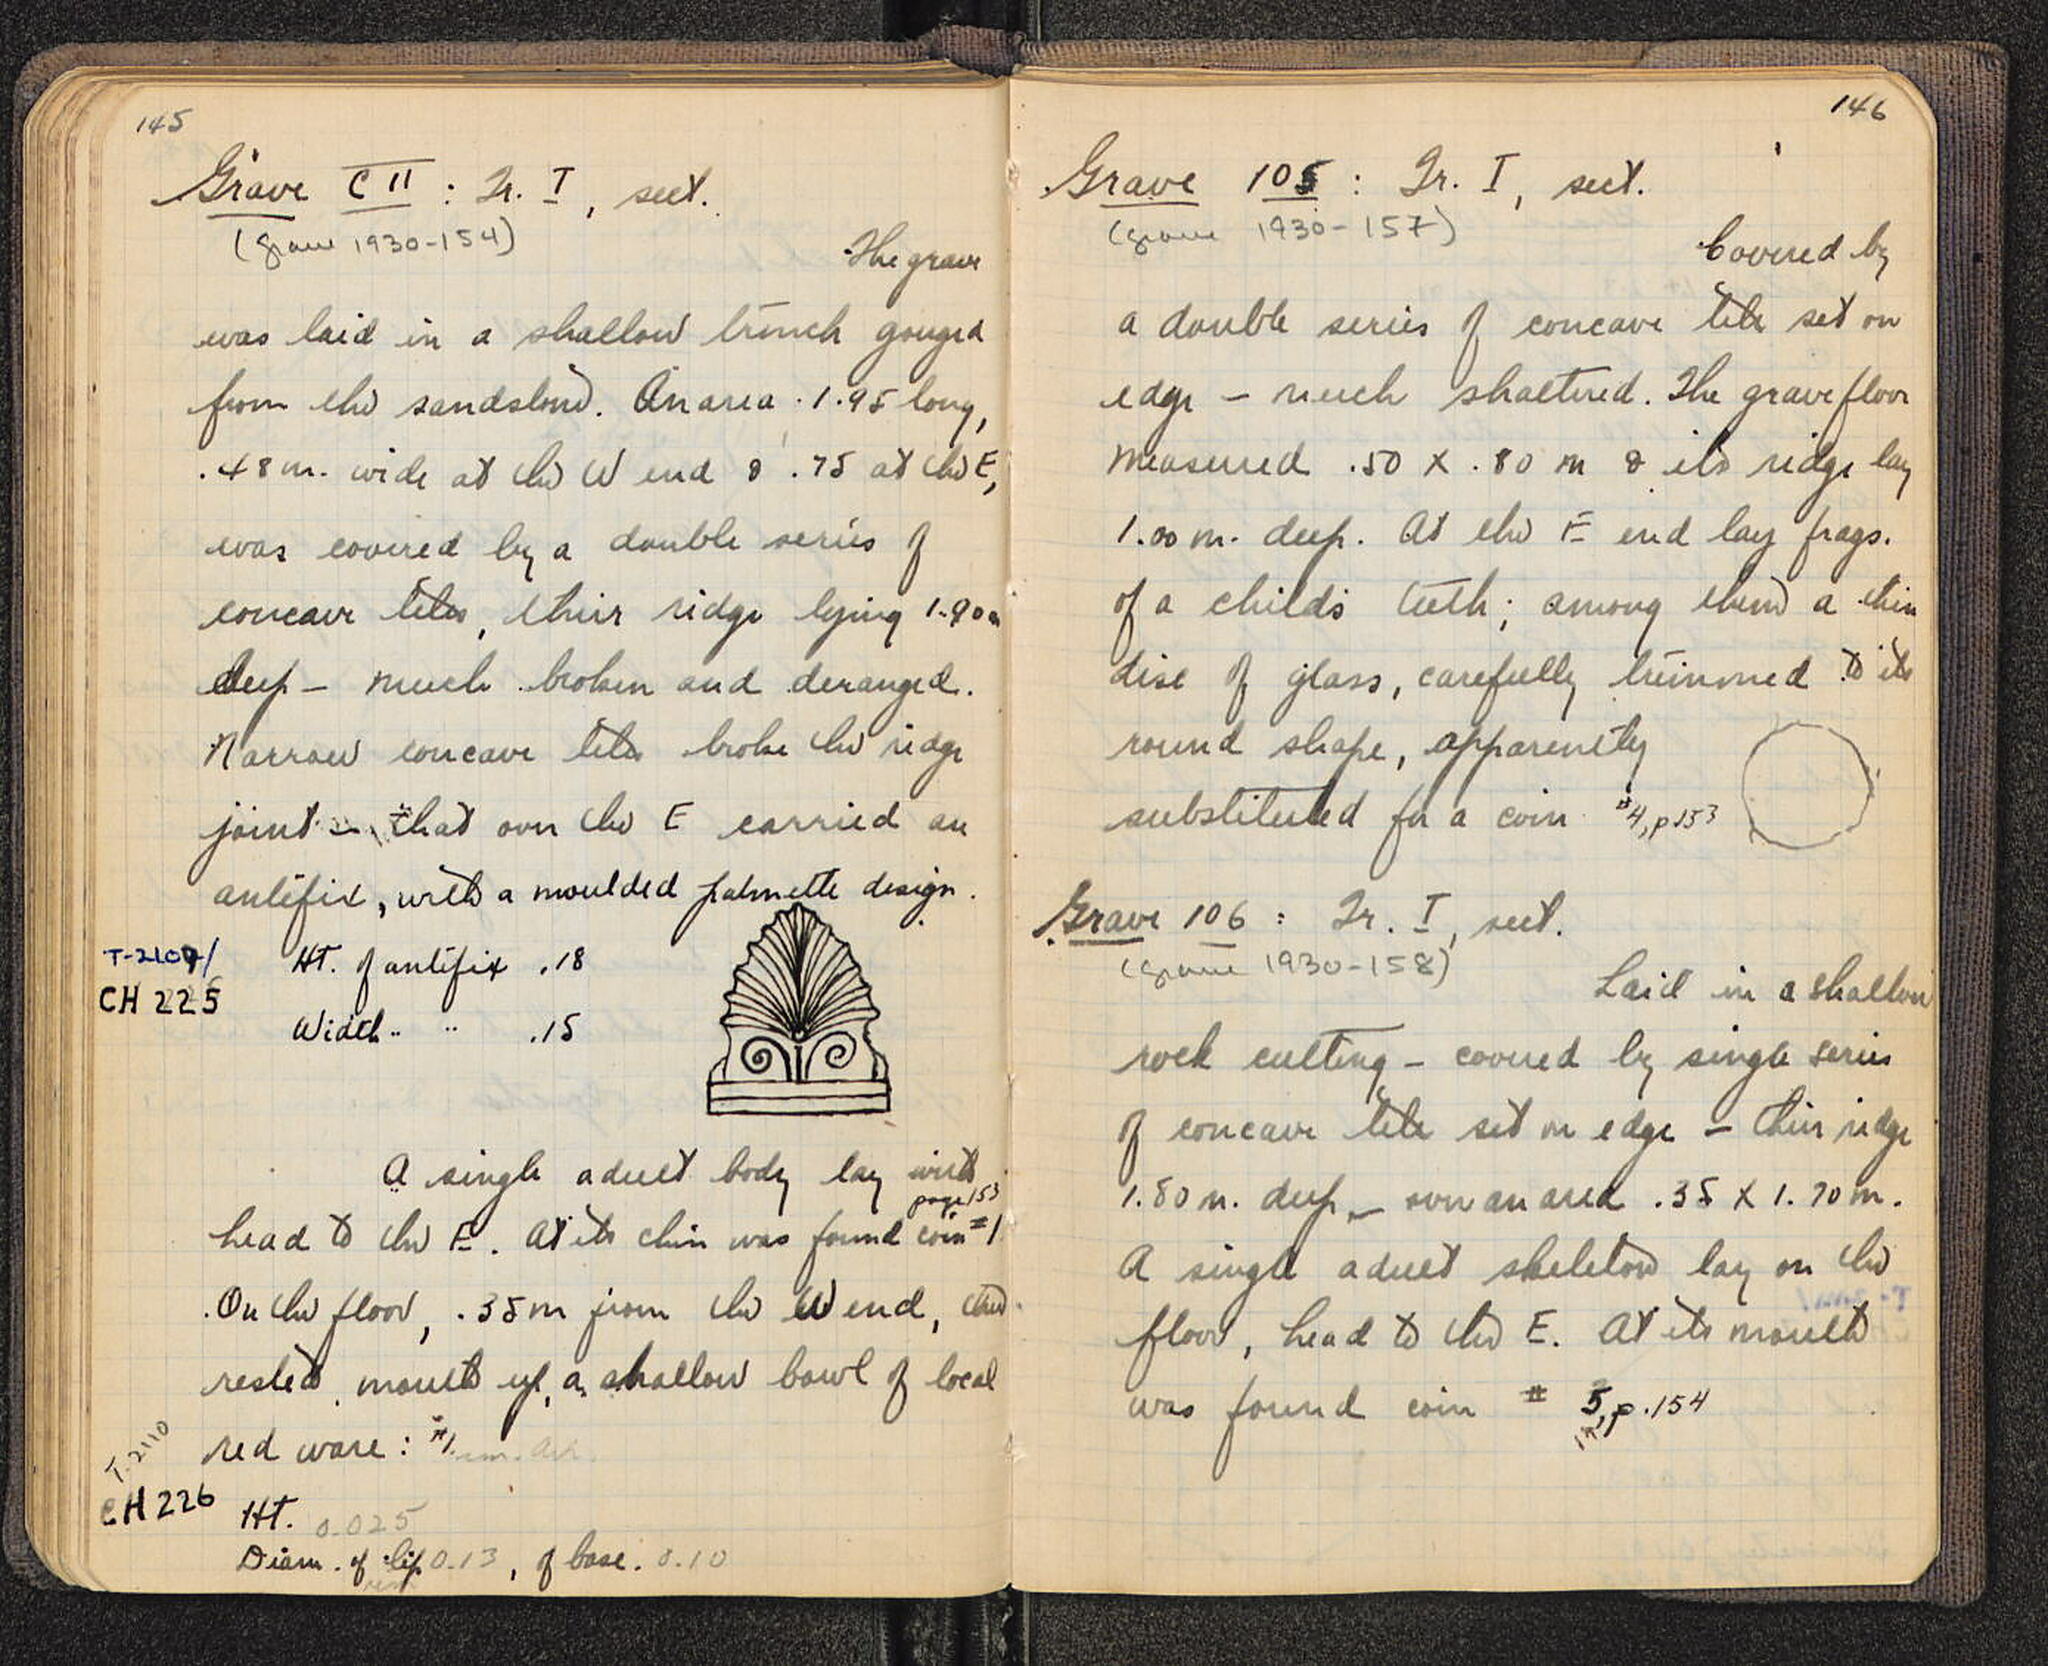 145
Grave CII : Tr. I, sect.
(grave 1930-154)
The grave
was laid in a shallow trench gouged
from the sandstone. An area 1.95 long,
.48 m. wide at the W end & .75 at the E,
was covered by a double series of
concave tiles, their ridge lying 1.90 m
deep – much broken and deranged.
Narrow concave tiles broke the ridge
joint – that over the E carried an
antefix, with a moulded palmette design.
T-2109/
CH 225
HT. of antefix .18
Width " " .15
A single adult body lay with
page 153
head to the E. At its chin was found coin #1
On the floor, .35 m from the W end, there
rested, mouth up, a shallow bowl of local
red ware : #1.
T-2110
CH 226
HT. 0.025
Diam. of lip 0.13, of base. 0.10
rim
146
Grave 105 : Tr. I, sect.
(grave 1930-157)
Covered by
a double series of concave tile set on
edge – much shattered. The grave floor
measured .50 X .80 m & its ridge lay
1.00 m. deep. At the E end lay frags.
of a child's teeth; among them a thin
disc of glass, carefully trimmed to its
round shape, apparently
substituted for a coin #4, p.153
Grave 106 : Tr. I, sect.
(grave 1930-158)
Laid in a shallow
rock cutting – covered by single series
of concave tile set on edge – their ridge
1.80 m. deep – over an area .35 X 1.70 m.
A single adult skeleton lay on the
floor, head to the E. At its mouth
was found coin # 5, p.154